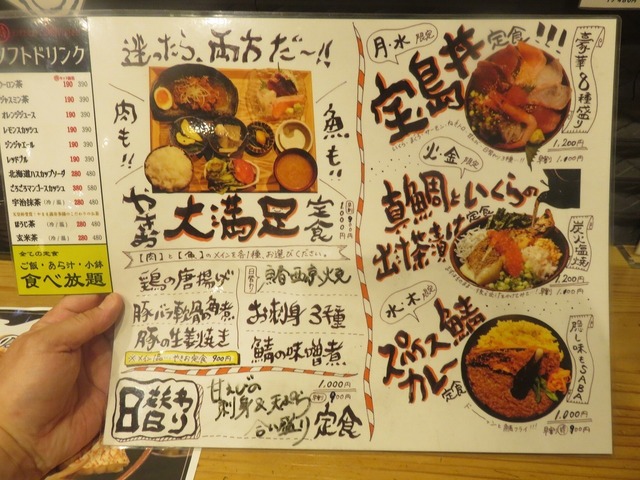 ソフトドリンク
ウーロン茶 190 390
ジャスミン茶 190 390
オレンジジュース 190 390
レモンスカッシュ 190 390
ジンジャエール 190 390
レッドブル 190 390
北海道ハスカップソーダ 380 480
ごろごろマンゴースカッシュ 380 580
宇治抹茶(冷/温) 380 480
ほうじ茶(冷/温) 380 480
玄米茶(冷/温) 380 480
全ての定食
ご飯・あら汁・小鉢
食べ放題
迷ったら、両方だ〜!!
肉も!!
魚も!!
大満足定食
1,000円
【肉】と【魚】のメインを各1種、お選びください。
鶏の唐揚げ
豚バラ軟骨の角煮
豚の生姜焼き
日替り
西京焼
お刺身3種
鯖の味噌煮
定食 900円
日替わり
甘えびの
刺身&天ぷら
合い盛り
定食
1,000円
900円
月・水限定
宝島丼定食!!!
豪華8種盛り
1,200円
火・金限定
真鯛といくらの
出汁茶漬け定食
炭火塩焼
1,200円
水・木限定
スパイス鯖
カレー定食
隠し味もSABA
1,000円
900円